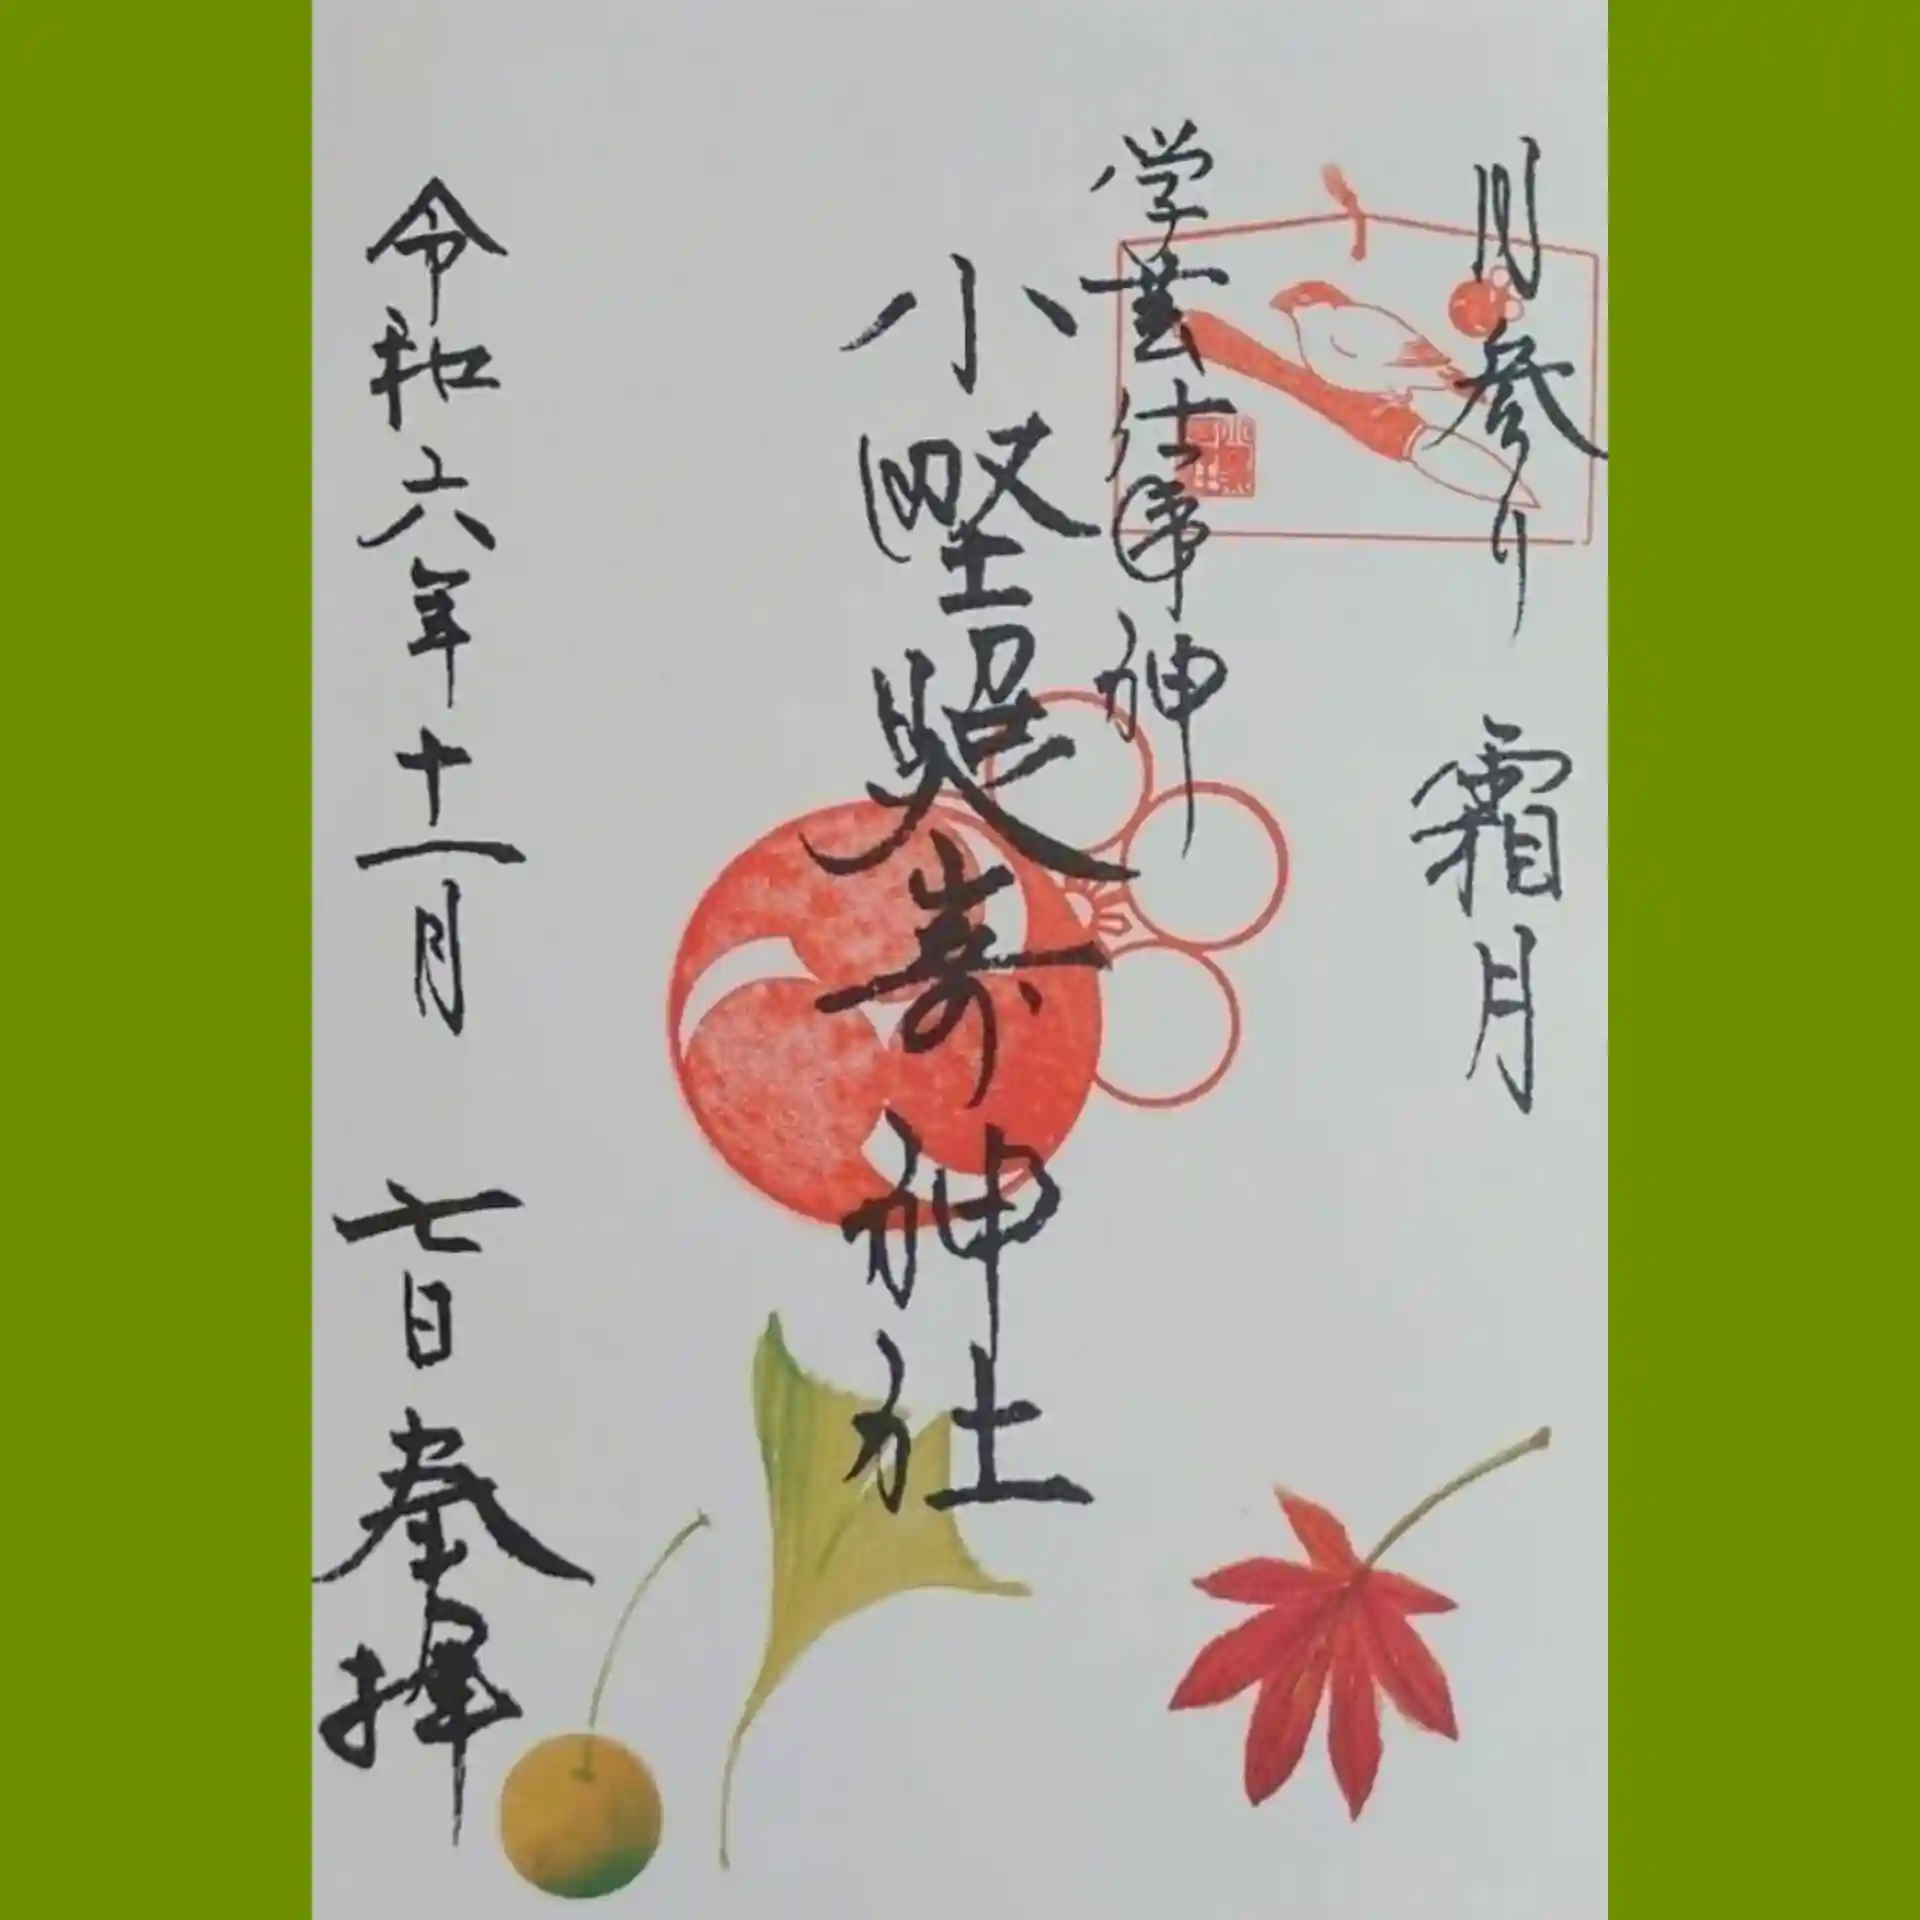 月参り 霜月
学芸仕事神
小野照崎神社
令和六年十一月 七日 奉拝